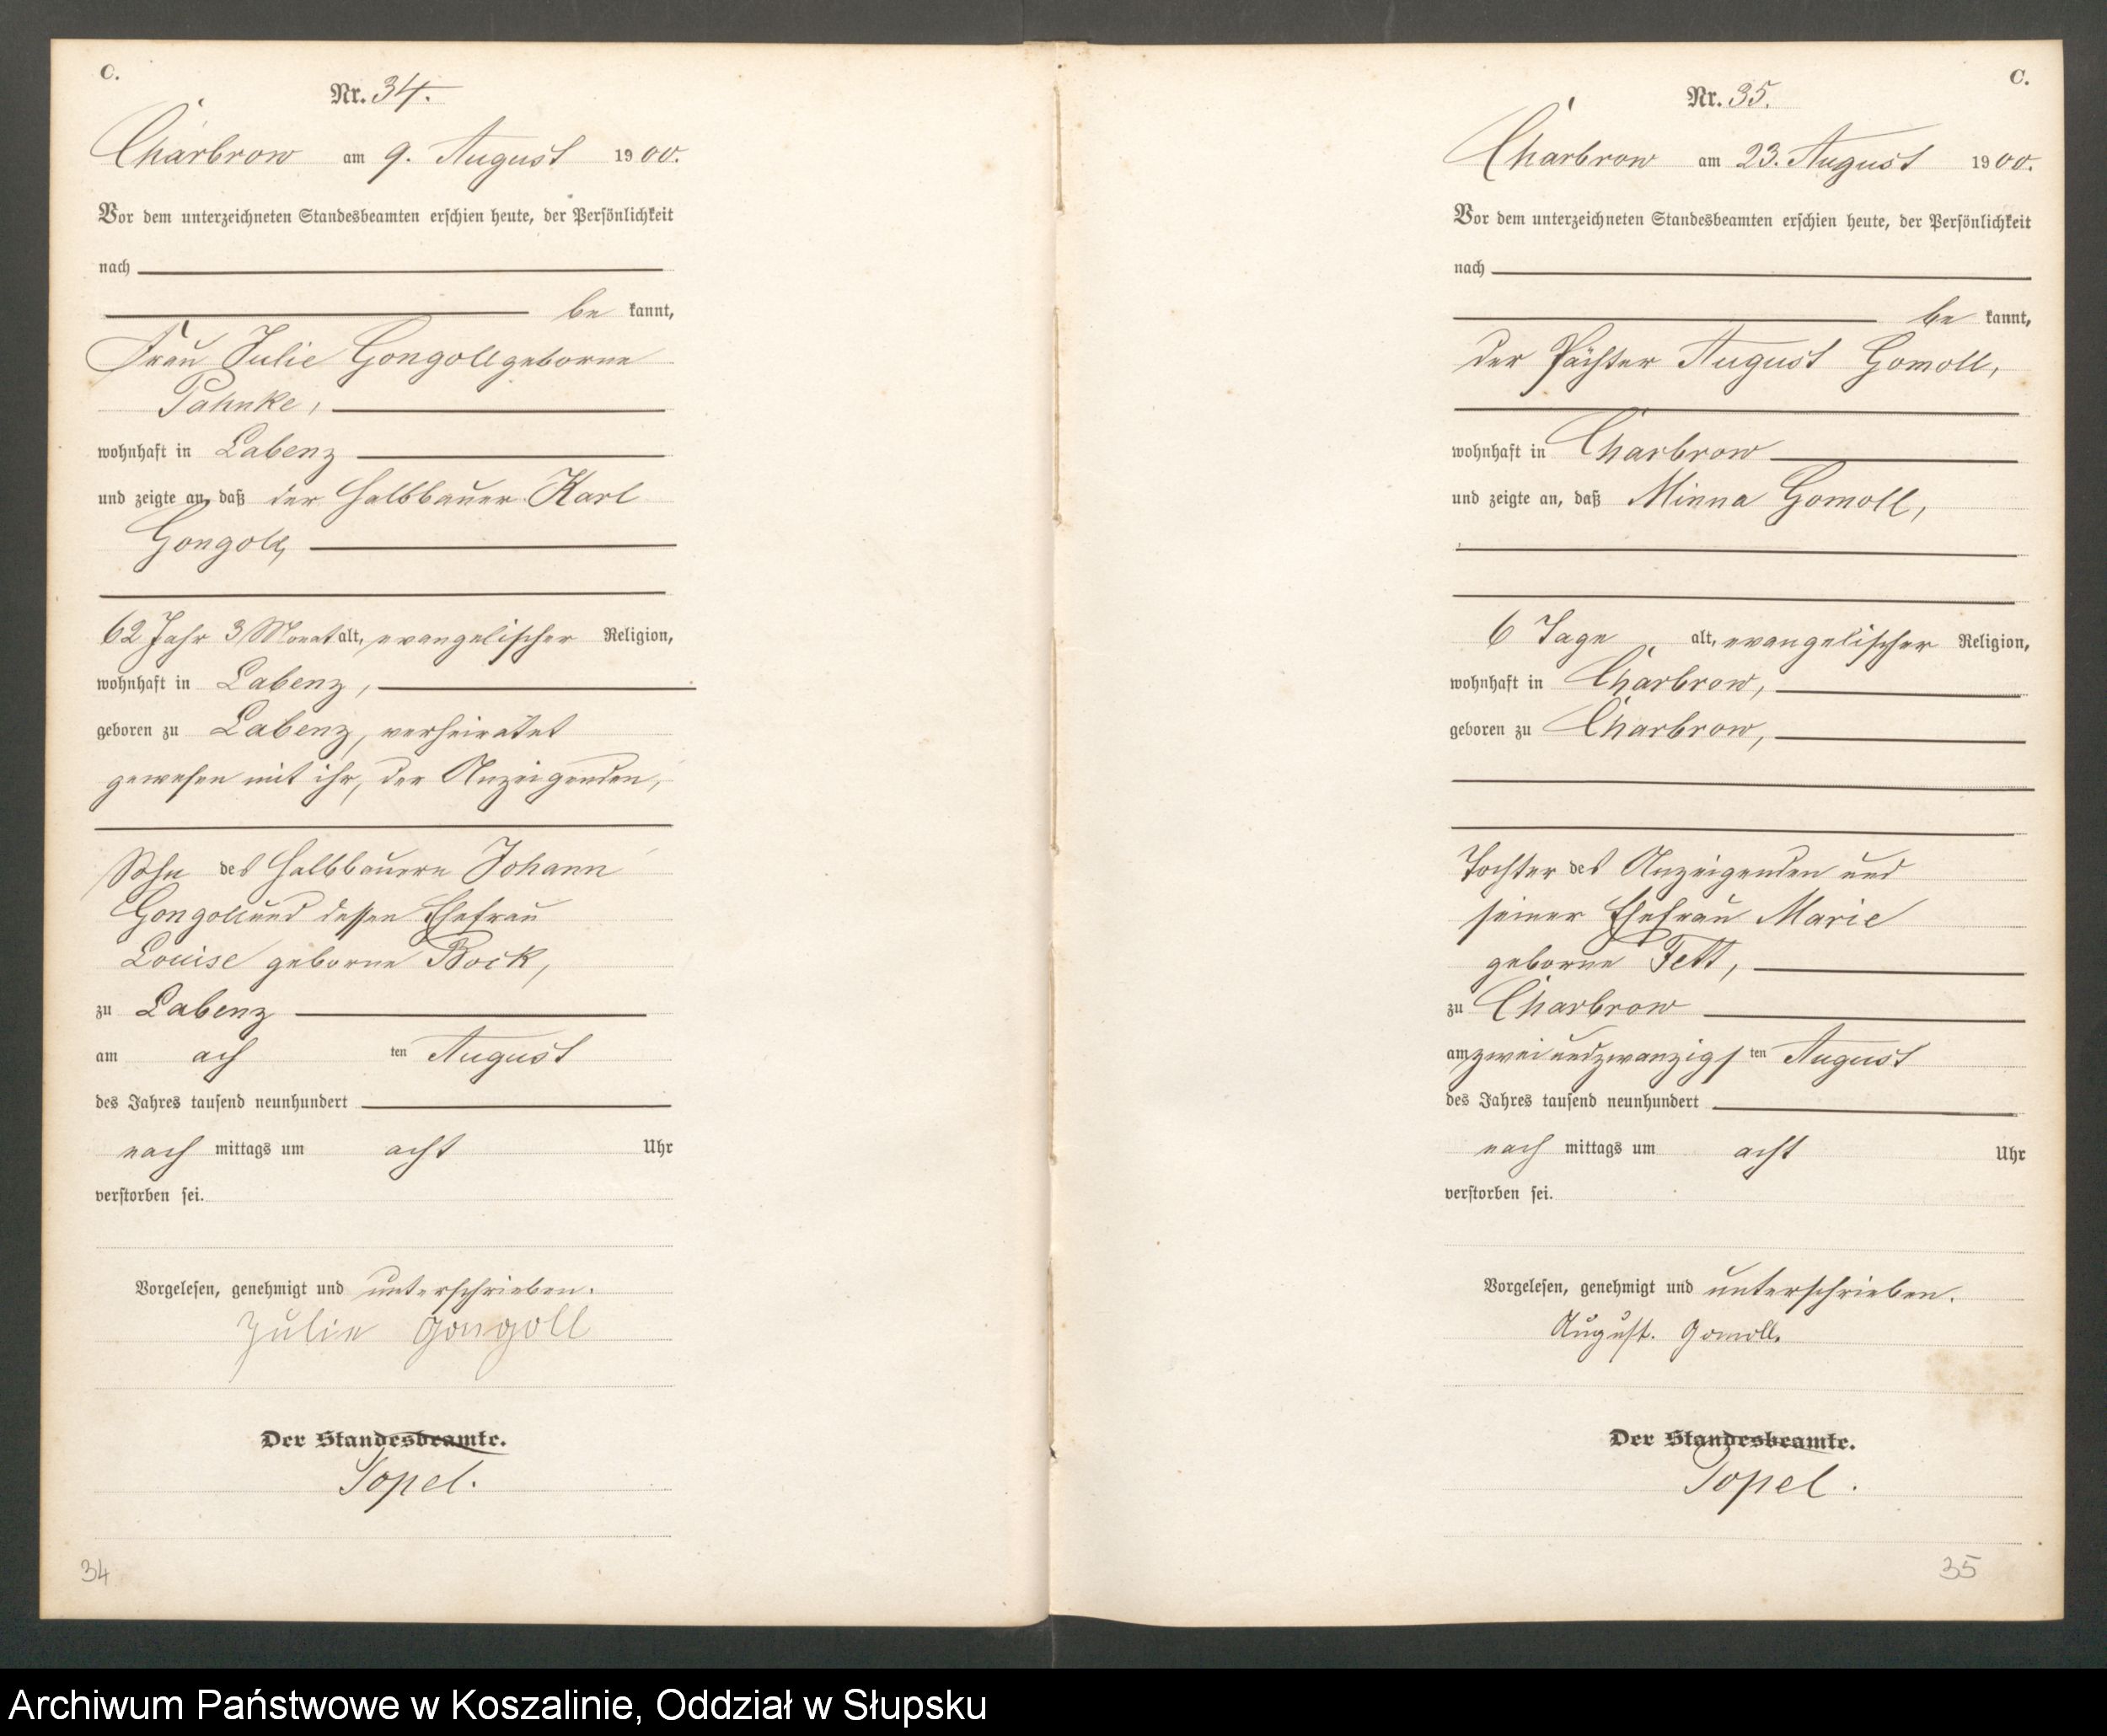 C.
Nr. 34.
Charbrow am 9. August 1900.
Vor dem unterzeichneten Standesbeamten erschien heute, der Persönlichkeit
nach
be kannt,
Frau Julie Gongoll geborne
Pahnke,
wohnhaft in Labenz
und zeigte an, daß der Halbbauer Karl
Gongoll,
62 Jahr 3 Monat alt, evangelischer Religion,
wohnhaft in Labenz,
geboren zu Labenz, verheiratet
gewesen mit ihr, der Anzeigenden,
Sohn des Halbbauern Johann
Gongoll und dessen Ehefrau
Louise geborne Bock,
zu Labenz
am ach ten August
des Jahres tausend neunhundert
nach mittags um acht Uhr
verstorben sei.
Vorgelesen, genehmigt und unterschrieben.
Julie Gongoll
Der Standesbeamte.
Topel.
34
C.
Nr. 35.
Charbrow am 23. August 1900.
Vor dem unterzeichneten Standesbeamten erschien heute, der Persönlichkeit
nach
be kannt,
der Pächter August Gomoll,
wohnhaft in Charbrow
und zeigte an, daß Minna Gomoll,
6 Tage alt, evangelischer Religion,
wohnhaft in Charbrow,
geboren zu Charbrow,
Tochter des Anzeigenden und
seiner Ehefrau Marie
geborne Fett,
zu Charbrow
am zweiundzwanzigs ten August
des Jahres tausend neunhundert
nach mittags um acht Uhr
verstorben sei.
Vorgelesen, genehmigt und unterschrieben.
August. Gomoll.
Der Standesbeamte.
Topel.
35
Archiwum Państwowe w Koszalinie, Oddział w Słupsku